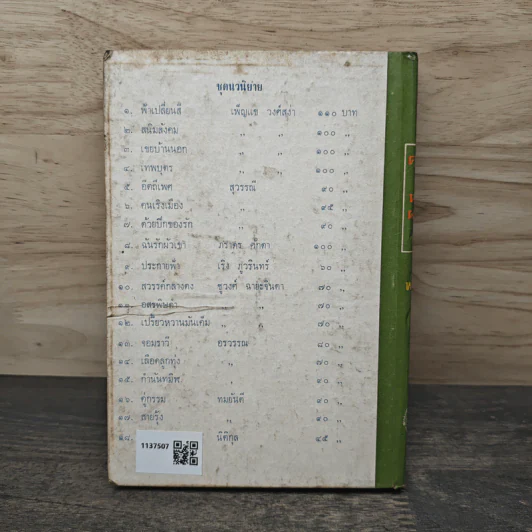 ชุดนวนิยาย
๑. ฟ้าเปลี่ยนสี เพ็ญแข วงศ์สง่า ๑๑๐ บาท
๒. สนิมสังคม ,, ,, ๑๐๐ ,,
๓. เขยบ้านนอก ,, ,, ๑๐๐ ,,
๔. เทพบุตร ,, ,, ๑๐๐ ,,
๕. อิตถีเพศ สุวรรณี ๙๐ ,,
๖. คนเริงเมือง ,, ๔๕ ,,
๗. ด้วยปีกของรัก ,, ๙๐ ,,
๘. ฉันรักผัวเขา ภราดร ศักดา ๑๐๐ ,,
๙. ประกายฟ้า เริง ภูวรินทร์ ๖๐ ,,
๑๐. สวรรค์กลางดง ชูวงศ์ ฉายะจินดา ๗๐ ,,
๑๑. อสรพิษดำ ,, ๗๐ ,,
๑๒. เปรี้ยวหวานมันเค็ม ,, ๗๐ ,,
๑๓. จอมราวี อรวรรณ ๘๐ ,,
๑๔. เลือดลูกทุ่ง ,, ๗๐ ,,
๑๕. กำนันทมิฬ ,, ๙๐ ,,
๑๖. คู่กรรม ทมยันตี ๙๐ ,,
๑๗. สายรุ้ง ,, ๙๐ ,,
๑๘. นิติกุล ๔๕ ,,
1137507